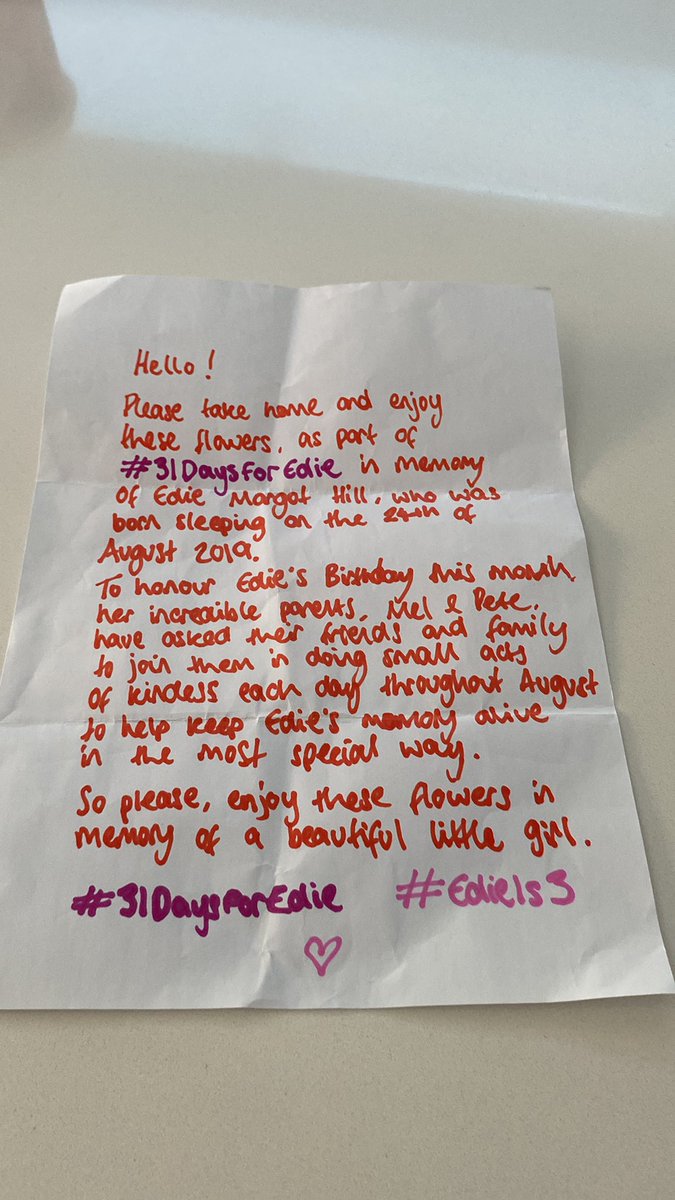 Hello!
Please take home and enjoy
these flowers, as part of
#31DaysForEdie in memory
of Edie Margot Hill, who was
born sleeping on the 24th of
August 2019.
To honour Edie's Birthday this month,
her incredible parents, Mel & Pete,
have asked their friends and family
to join them in doing small acts
of kindess each day throughout August
to help keep Edie's memory alive
in the most special way.
So please, enjoy these flowers in
memory of a beautiful little girl.
#31DaysForEdie #EdieIs3